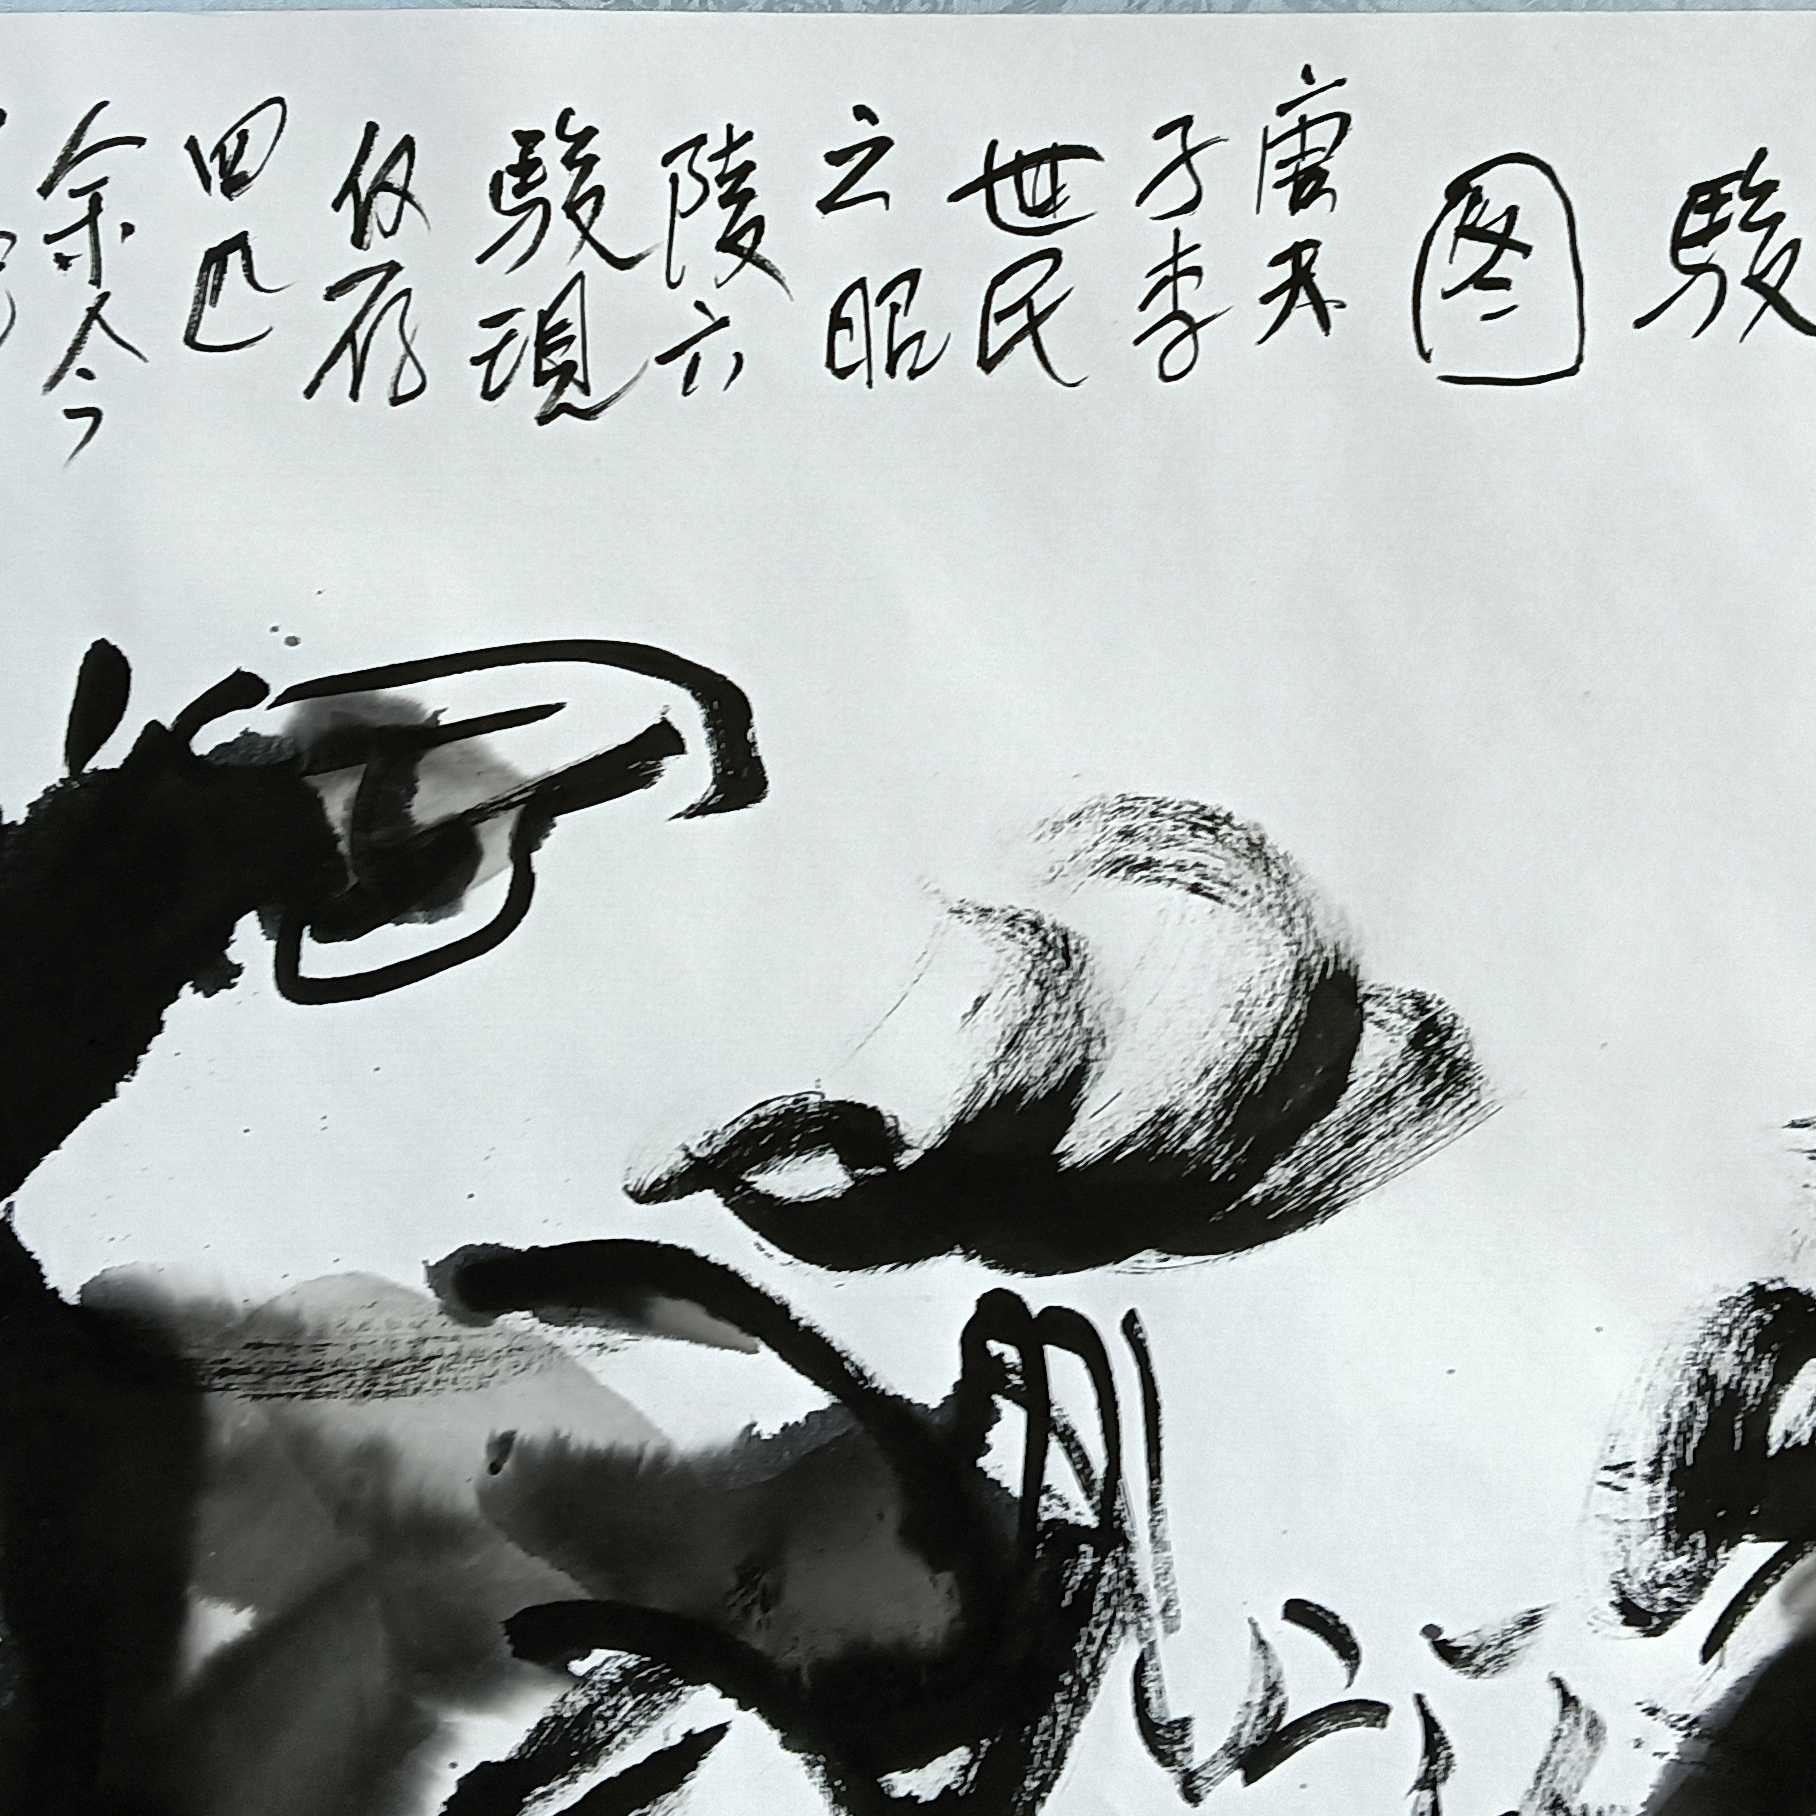 駿
图
唐天
子李
世民
之昭
陵六
駿現
仅存
四匹
余今